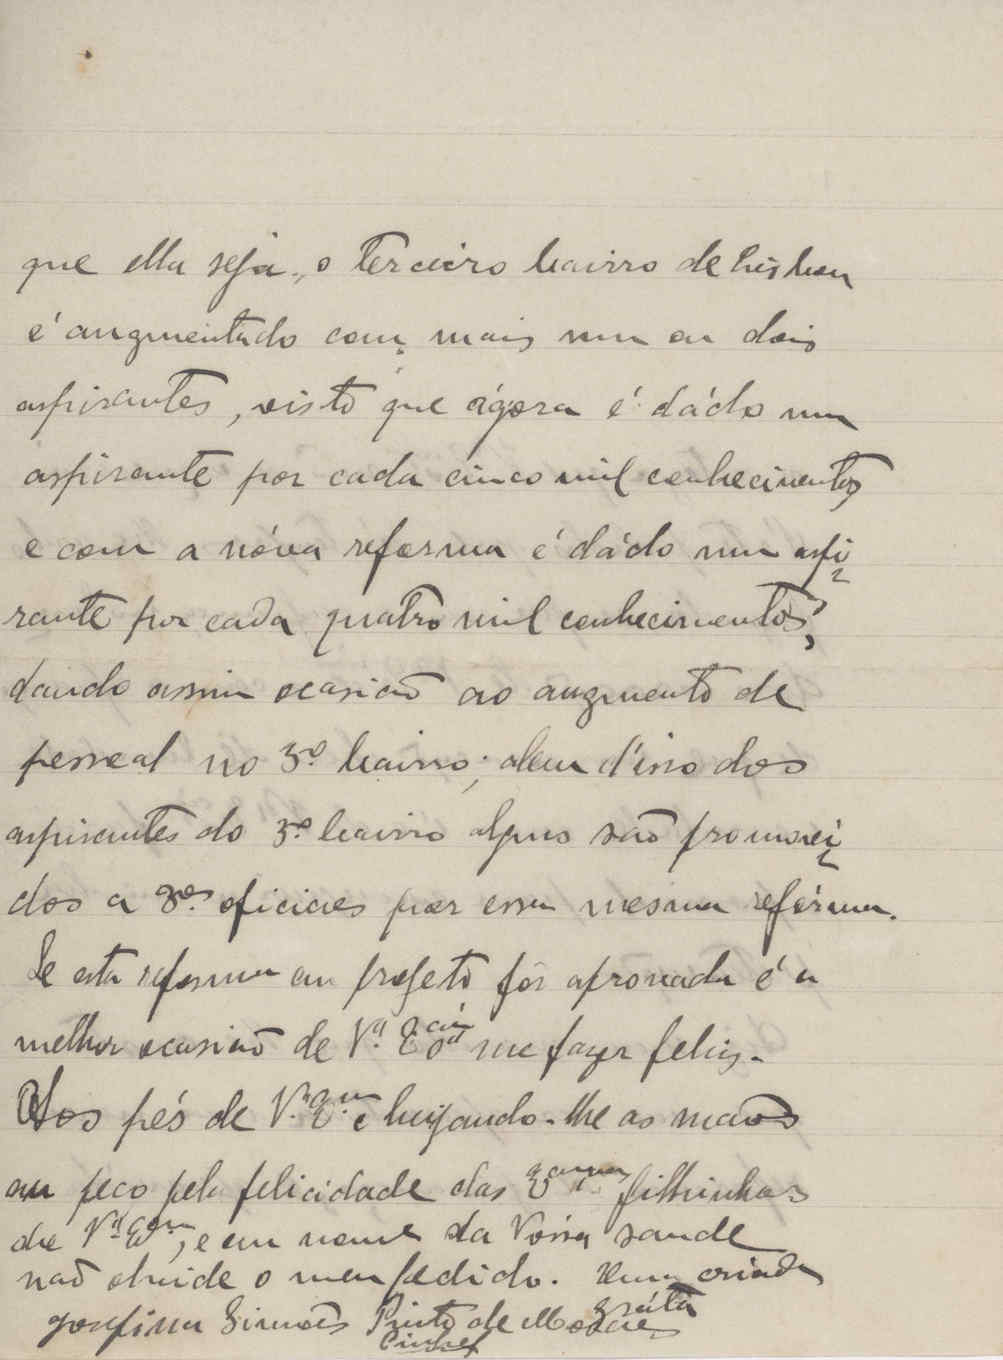 que ella seja, o terceiro bairro de Lisboa
é augmentado com mais um ou dois
aspirantes, visto que ágora é dádo um
aspirante por cada cinco mil conhecimentos,
e com a nóva reforma é dádo um aspi=
rante por cada quatro mil conhecimentos,
dando assim ocasião ao augmento de
pessoal no 3º. bairro; alem d'isso dos
aspirantes do 3º. bairro alguns são promovi=
dos a 3os. oficiaes por essa mesma refórma.
Se esta reforma em projeto fôr aprovada é a
melhor ocasião de Vª. Excia me fazer feliz.
Aos pés de Vª. Exª. e beijando-lhe as mãos
eu peço pela felicidade das Exmas filhinhas
de Vª Exª, e em nome da Vóssa saude
não olvide o meu pedido. Uma criada
gráta
Josefina Simões Pinto de Moraes
Pinhel